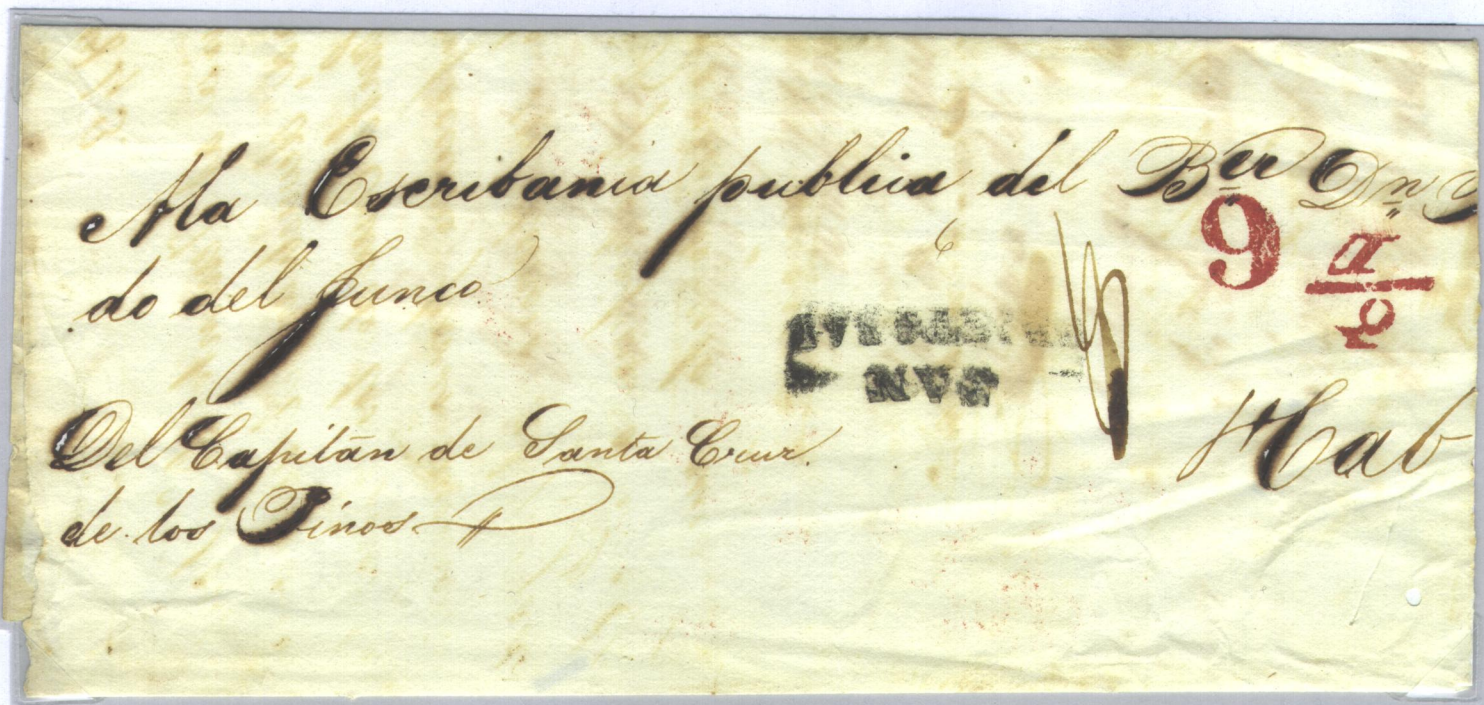 A la Escribania publica del B.er D.n
do del Junco.
9
SAN
Del Capitan de Santa Cruz
de los Pinos
Hab